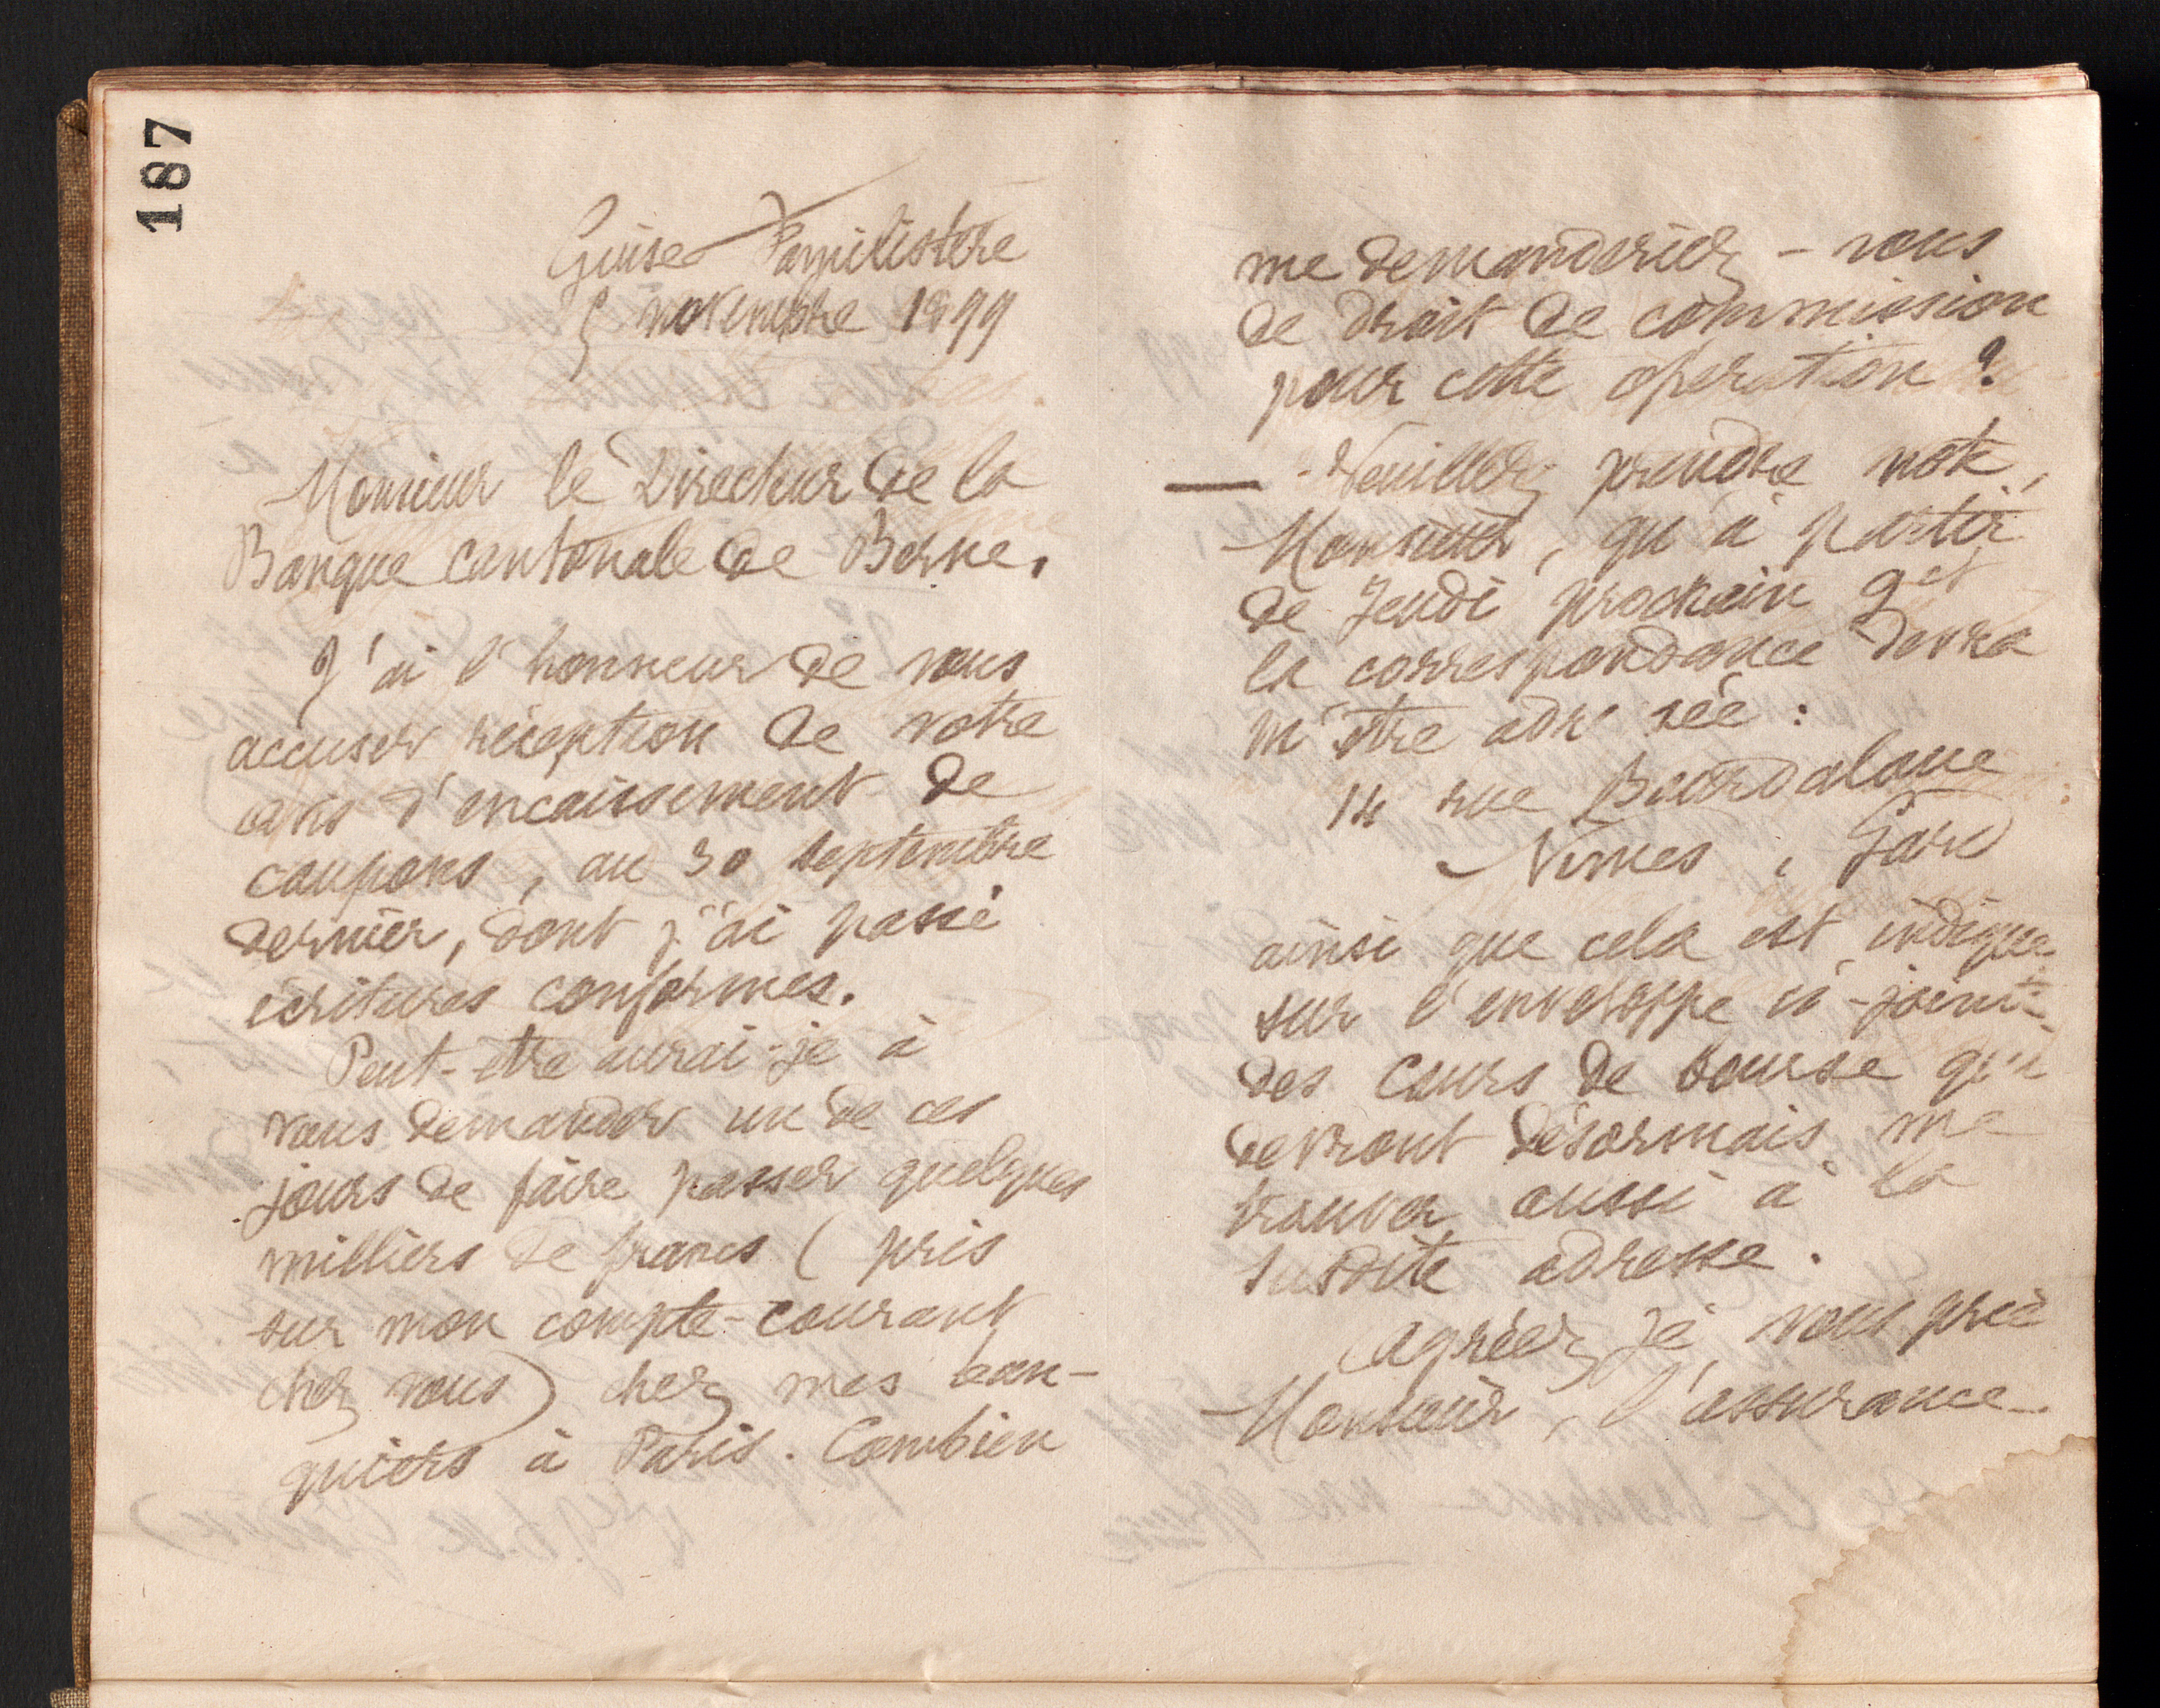 187
Guise Familistère
5 novembre 1899
Monsieur le Directeur de la
Banque cantonale de Berne.
J'ai l'honneur de vous
accuser réception de votre
avis d'encaissement de
coupons, au 30 septembre
dernier, dont j'ai passé
écritures conformes.
Peut-etre aurai-je à
vous demander un de ces
jours de faire passer quelques
milliers de francs (pris
sur mon compte-courant
chez vous) chez mes ban-
quiers à Paris. Combien
me demanderiez-vous
de droit de commission
pour cette opération ?
— Veuillez prendre note,
Monsieur, qu'à partir
de Jeudi prochain 9 ct
la correspondance devra
m'être adr sée :
14 rue Bourdaloue
Nimes, Gard
ainsi que cela est indiqué
sur l'enveloppe ci-jointe
des Cours de bourse qui
devront désormais me
trouver aussi à la
susdite adresse.
Agréez, je vous prie
Monsieur, l'assurance